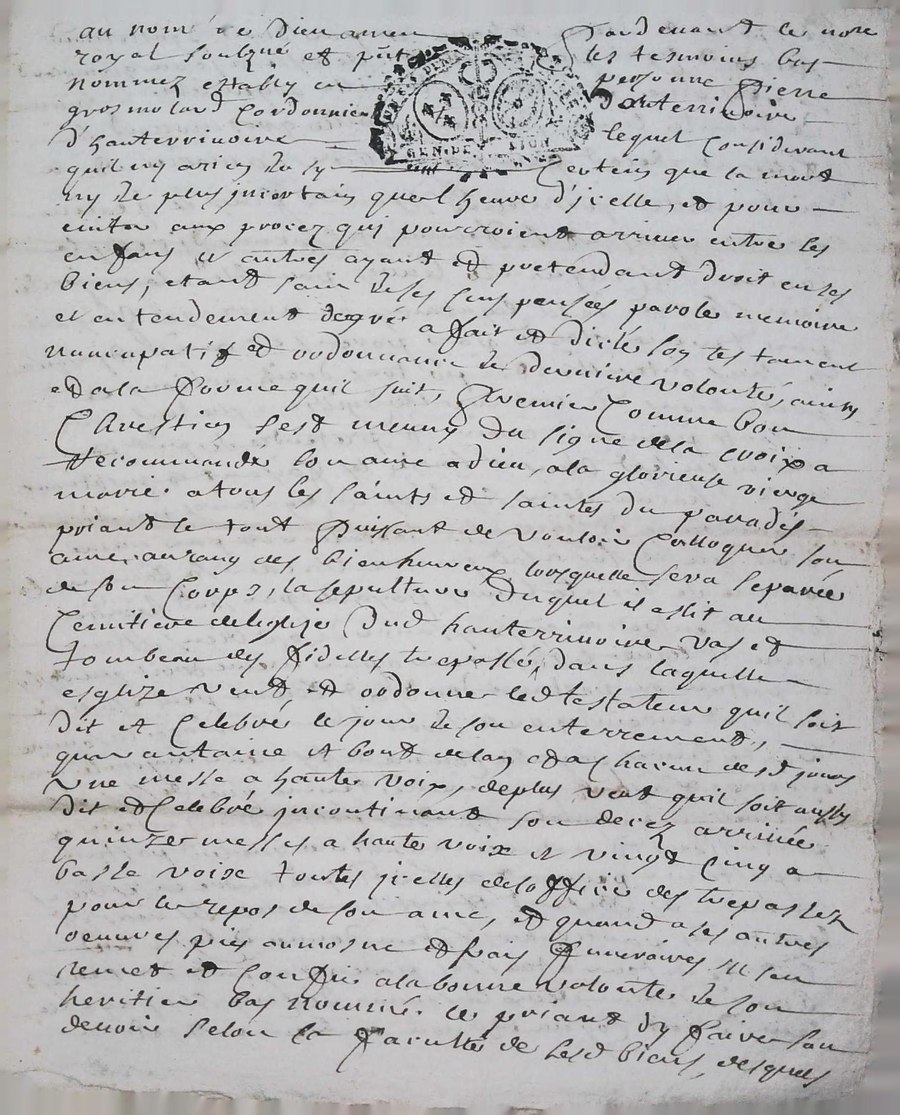 au nom de Dieu amen Pardevant le nore
royal soubzne et pnts les tesmoins bas
nommez estably en personne Pierre
grosmolard Cordonnier d'hauterrivoire
d'hauterrivoire lequel Considerant
quil ny a rien de sy Certain que la mort
ny de plus incertain que l heure d'jcelle, et pour
eviter aux procez qui pourroient arriver entre les
enfans et autres ayant et pretendant droit en ses
biens, etant sain de ses sens pensées parole memoire
et entendement de gré a fait et dicté son testament
nuncupatif et ordonnance de derniere volonté, ainsy
et a la forme quil suit, Premier Comme bon
Chrestien sest muny du signe de la croix a
Recommandé son ame a dieu, a la glorieuse vierge
marie a tous les saints et saintes du paradis
priant le tout Puissant de vouloir Colloquer son
ame au rang des bienheureux lorsquelle sera separée
de son Corps, la sepulture duquel il eslit au
Cemitiere de leglize dud hauterrivoire vas et
tombeau des fidelles trepassés, dans laquelle
esglize veut et ordonne led testateur quil soit
dit et Celebré le jour de son enterrement,
quarantaine et bout de lan et a chacun desd jours
vne messe a haute voix, de plus veut quil soit aussy
dit et Celebré jncontinent son decez arrivée
quinze messes a haute voix et vingt Cinq a
basse voix toutes jcelles de loffice des trepassez
pour le repos de son ame, et quand a ses autres
oeuvres pies aumosne et frais funeraires il sen
remet et Confie a la bonne volonte de son
heritier bas nommé le priant dy faire son
devoir selon la faculté de sesd biens, desquels